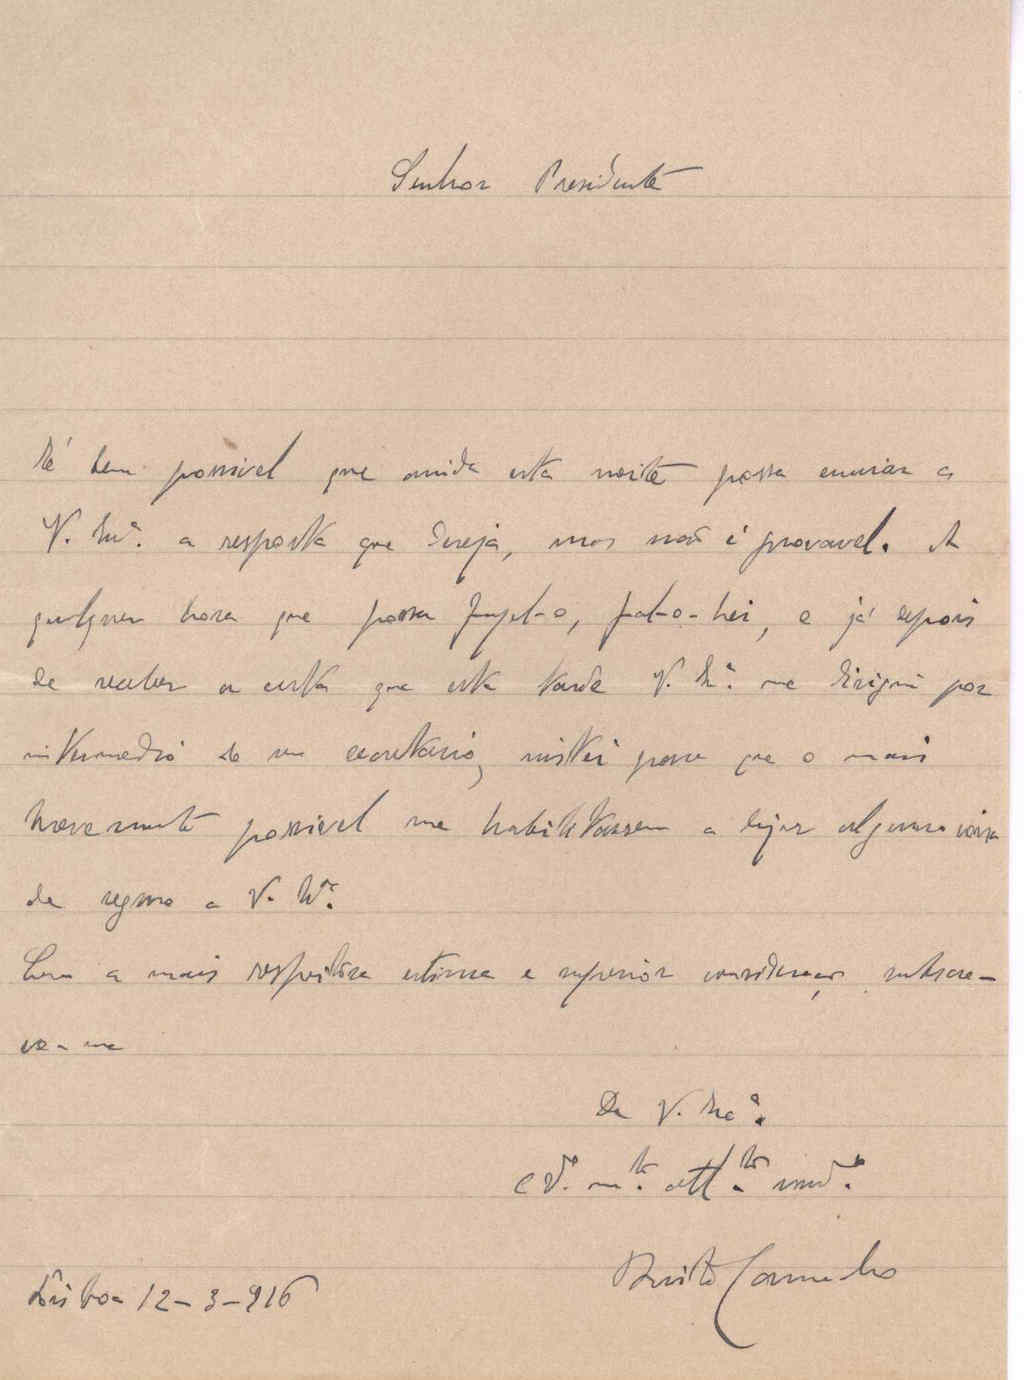 Senhor Presidente
É bem possivel que ainda esta noite possa enviar a
V. Exª. a resposta que deseja, mas não é provavel. A
qualquer hora que possa fazel-o, fal-o-hei, e já depois
de receber a carta que esta tarde V. Exª. me dirigiu por
intermedio do seu secretario, insistei para que o mais
brevemente possivel me habilitassem a dizer alguma coisa
de seguro a V. Exª.
Com a mais respeitosa estima e superior consideração subscre-
vo-me
De V. Exª.
Cdº. mtº. attº. vendº.
Brito Camacho
Lisboa 12-3-916